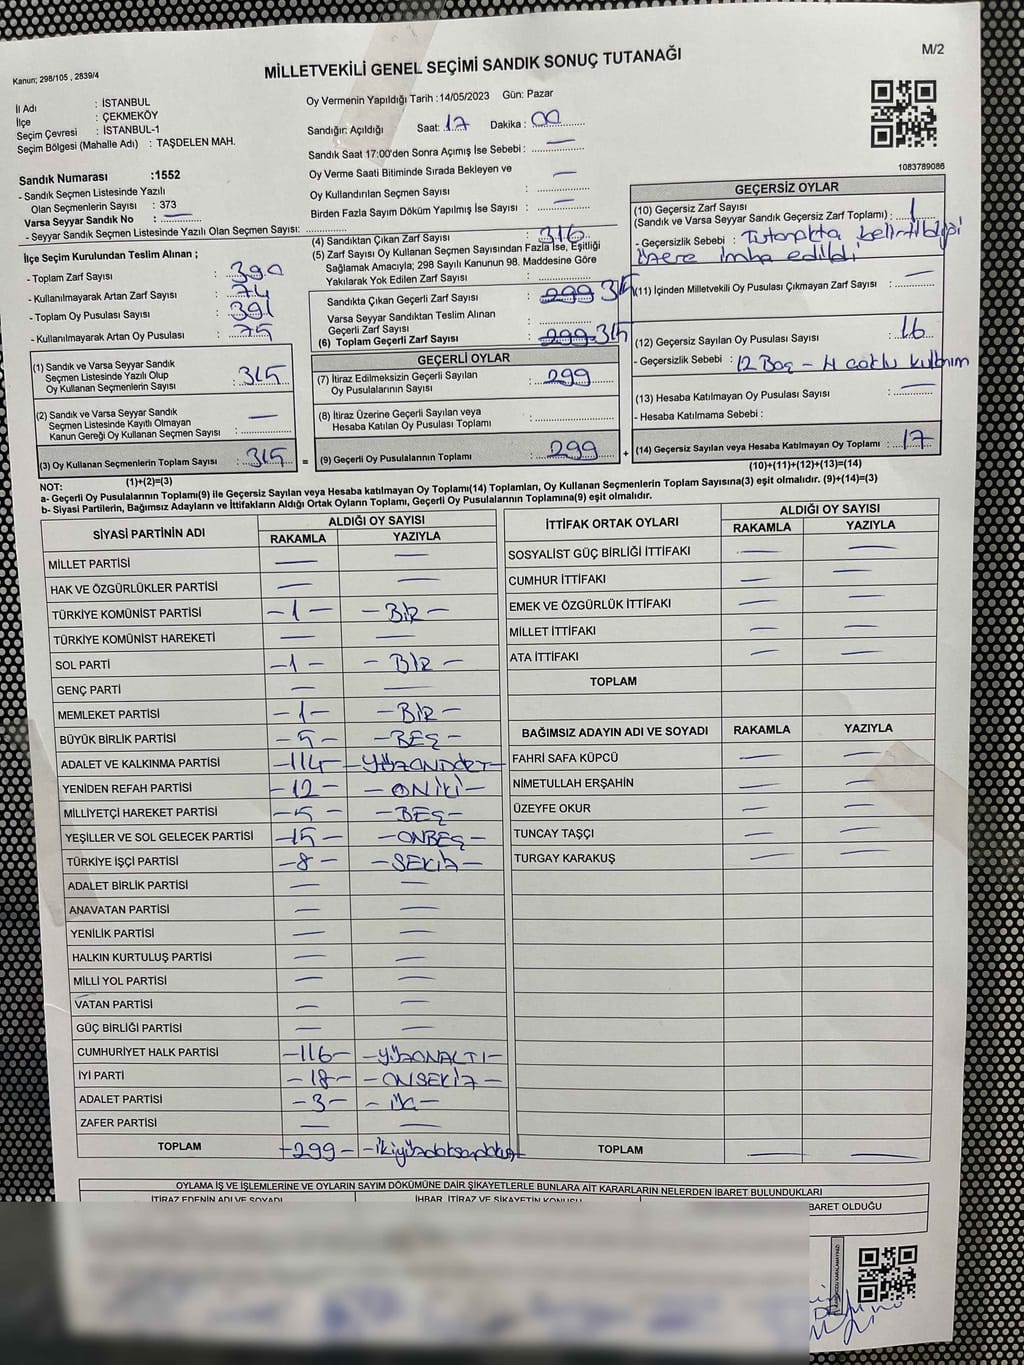 M/2
Kanun; 298/105 , 2839/4
MİLLETVEKİLİ GENEL SEÇİMİ SANDIK SONUÇ TUTANAĞI
İl Adı : İSTANBUL
İlçe : ÇEKMEKÖY
Seçim Çevresi : İSTANBUL-1
Seçim Bölgesi (Mahalle Adı) : TAŞDELEN MAH.
Oy Vermenin Yapıldığı Tarih :14/05/2023 Gün: Pazar
Sandığın Açıldığı Saat: 17 Dakika: 00
Sandık Saat 17:00'den Sonra Açımış İse Sebebi : —
Oy Verme Saati Bitiminde Sırada Bekleyen ve
Oy Kullandırılan Seçmen Sayısı : —
Birden Fazla Sayım Döküm Yapılmış İse Sayısı : —
1083789086
Sandık Numarası :1552
- Sandık Seçmen Listesinde Yazılı
Olan Seçmenlerin Sayısı : 373
Varsa Seyyar Sandık No : —
- Seyyar Sandık Seçmen Listesinde Yazılı Olan Seçmen Sayısı:
İlçe Seçim Kurulundan Teslim Alınan ;
- Toplam Zarf Sayısı : 390
- Kullanılmayarak Artan Zarf Sayısı : 74
- Toplam Oy Pusulası Sayısı : 391
- Kullanılmayarak Artan Oy Pusulası : 75
(1) Sandık ve Varsa Seyyar Sandık
Seçmen Listesinde Yazılı Olup
Oy Kullanan Seçmenlerin Sayısı : 315
(2) Sandık ve Varsa Seyyar Sandık
Seçmen Listesinde Kayıtlı Olmayan
Kanun Gereği Oy Kullanan Seçmen Sayısı : —
(3) Oy Kullanan Seçmenlerin Toplam Sayısı : 315
(1)+(2)=(3)
(4) Sandıktan Çıkan Zarf Sayısı : 316
(5) Zarf Sayısı Oy Kullanan Seçmen Sayısından Fazla İse, Eşitliği
Sağlamak Amacıyla; 298 Sayılı Kanunun 98. Maddesine Göre
Yakılarak Yok Edilen Zarf Sayısı :
Sandıkta Çıkan Geçerli Zarf Sayısı : 299 315
Varsa Seyyar Sandıktan Teslim Alınan
Geçerli Zarf Sayısı :
(6) Toplam Geçerli Zarf Sayısı : 299 315
GEÇERLİ OYLAR
(7) İtiraz Edilmeksizin Geçerli Sayılan
Oy Pusulalarının Sayısı : 299
(8) İtiraz Üzerine Geçerli Sayılan veya
Hesaba Katılan Oy Pusulası Toplamı :
= (9) Geçerli Oy Pusulalarının Toplamı : 299 +
GEÇERSİZ OYLAR
(10) Geçersiz Zarf Sayısı
(Sandık ve Varsa Seyyar Sandık Geçersiz Zarf Toplamı) : 1
- Geçersizlik Sebebi : Tutanakta belirtildiği
üzere imha edildi
(11) İçinden Milletvekili Oy Pusulası Çıkmayan Zarf Sayısı : —
(12) Geçersiz Sayılan Oy Pusulası Sayısı : 16
- Geçersizlik Sebebi : 12 Boş - 4 çoklu kullanım
(13) Hesaba Katılmayan Oy Pusulası Sayısı : —
- Hesaba Katılmama Sebebi :
(14) Geçersiz Sayılan veya Hesaba Katılmayan Oy Toplamı : 17
(10)+(11)+(12)+(13)=(14)
NOT:
a- Geçerli Oy Pusulalarının Toplamı(9) ile Geçersiz Sayılan veya Hesaba katılmayan Oy Toplamı(14) Toplamları, Oy Kullanan Seçmenlerin Toplam Sayısına(3) eşit olmalıdır. (9)+(14)=(3)
b- Siyasi Partilerin, Bağımsız Adayların ve İttifakların Aldığı Ortak Oyların Toplamı, Geçerli Oy Pusulalarının Toplamına(9) eşit olmalıdır.
SİYASİ PARTİNİN ADI
ALDIĞI OY SAYISI
RAKAMLA YAZIYLA
MİLLET PARTİSİ — —
HAK VE ÖZGÜRLÜKLER PARTİSİ — —
TÜRKİYE KOMÜNİST PARTİSİ -1- -BİR-
TÜRKİYE KOMÜNİST HAREKETİ — —
SOL PARTİ -1- -BİR-
GENÇ PARTİ — —
MEMLEKET PARTİSİ -1- -BİR-
BÜYÜK BİRLİK PARTİSİ -5- -BEŞ-
ADALET VE KALKINMA PARTİSİ -114- -YÜZONDÖRT-
YENİDEN REFAH PARTİSİ -12- -ONİKİ-
MİLLİYETÇİ HAREKET PARTİSİ -5- -BEŞ-
YEŞİLLER VE SOL GELECEK PARTİSİ -15- -ONBEŞ-
TÜRKİYE İŞÇİ PARTİSİ -8- -SEKİZ-
ADALET BİRLİK PARTİSİ — —
ANAVATAN PARTİSİ — —
YENİLİK PARTİSİ — —
HALKIN KURTULUŞ PARTİSİ — —
MİLLİ YOL PARTİSİ — —
VATAN PARTİSİ — —
GÜÇ BİRLİĞİ PARTİSİ — —
CUMHURİYET HALK PARTİSİ -116- -YÜZONALTI-
İYİ PARTİ -18- -ONSEKİZ-
ADALET PARTİSİ -3- -ÜÇ-
ZAFER PARTİSİ — —
TOPLAM -299- -ikiyüzdoksandokuz
İTTİFAK ORTAK OYLARI
ALDIĞI OY SAYISI
RAKAMLA YAZIYLA
SOSYALİST GÜÇ BİRLİĞİ İTTİFAKI — —
CUMHUR İTTİFAKI — —
EMEK VE ÖZGÜRLÜK İTTİFAKI — —
MİLLET İTTİFAKI — —
ATA İTTİFAKI — —
TOPLAM
BAĞIMSIZ ADAYIN ADI VE SOYADI RAKAMLA YAZIYLA
FAHRİ SAFA KÜPCÜ — —
NİMETULLAH ERŞAHİN — —
ÜZEYFE OKUR — —
TUNCAY TAŞÇI — —
TURGAY KARAKUŞ — —
TOPLAM — —
OYLAMA İŞ VE İŞLEMLERİNE VE OYLARIN SAYIM DÖKÜMÜNE DAİR ŞİKAYETLERLE BUNLARA AİT KARARLARIN NELERDEN İBARET BULUNDUKLARI
İTİRAZ EDENİN ADI VE SOYADI İHBAR, İTİRAZ VE ŞİKAYETİN KONUSU BARET OLDUĞU